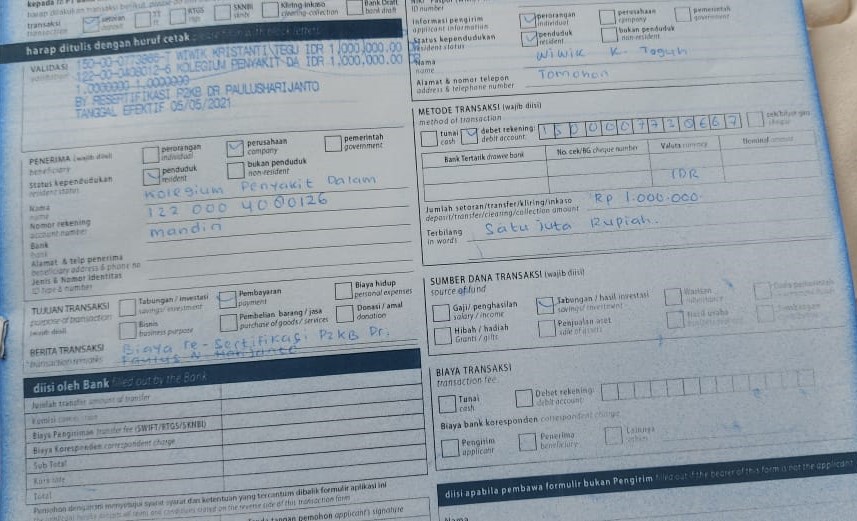 setoran
TT
RTGS
SKNBI
Kliring-inkaso
clearing-collection
Bank Draft
bank draft
transaksi
harap ditulis dengan huruf cetak
VALIDASI
WIWIK KRISTANTI TEGU IDR 1,000,000.00
KOLEGIUM PENYAKIT DA IDR 1,000,000.00
1.0000000 1.0000000
BY RESERTIFIKASI P2KB DR PAULUSHARIJANTO
TANGGAL EFEKTIF 05/05/2021
PENERIMA (wajib diisi)
beneficiary
perorangan
individual
perusahaan
company
pemerintah
government
Status kependudukan
resident status
penduduk
resident
bukan penduduk
non-resident
Nama
name
Kolegium Penyakit Dalam
Nomor rekening
account number
122 000 4080126
Bank
bank
mandiri
Alamat & telp penerima
beneficiary address & phone no
Jenis & Nomor Identitas
ID type & number
TUJUAN TRANSAKSI
purpose of transaction
(wajib diisi)
Tabungan / investasi
savings/ investment
Pembayaran
payment
Biaya hidup
personal expenses
Bisnis
business purpose
Pembelian barang / jasa
purchase of goods / services
Donasi / amal
donation
BERITA TRANSAKSI
transaction remarks
Biaya re-Sertifikasi P2KB Dr.
diisi oleh Bank filled out by the Bank
Jumlah transfer amount of transfer
Biaya Pengiriman transfer fee (SWIFT/RTGS/SKNBI)
Biaya Koresponden correspondent charge
Sub Total
Kurs rate
Total
Pemohon dengan ini menyetujui syarat-syarat dan ketentuan yang tercantum dibalik formulir aplikasi ini
Tanda tangan pemohon applicant's signature
ID number
Informasi pengirim
applicant information
perorangan
individual
perusahaan
company
pemerintah
government
Status kependudukan
resident status
penduduk
resident
bukan penduduk
non-resident
Nama
name
Wiwik K. Teguh
Alamat & nomor telepon
address & telephone number
Tomohon
METODE TRANSAKSI (wajib diisi)
method of transaction
tunai
cash
debet rekening:
debit account
cek/bilyet giro
cheque
Bank Tertarik drawee bank
No. cek/BG cheque number
Valuta currency
Nominal amount
IDR
Jumlah setoran/transfer/kliring/inkaso
deposit/transfer/clearing/collection amount
Rp 1.000.000
Terbilang
in words
Satu juta Rupiah.
SUMBER DANA TRANSAKSI (wajib diisi)
source of fund
Gaji/ penghasilan
salary / income
Tabungan / hasil investasi
savings/ investment
Warisan
inheritance
Hibah / hadiah
Grants / gifts
Penjualan aset
sale of assets
Hasil usaha
BIAYA TRANSAKSI
transaction fee
Tunai
cash
Debet rekening:
debit account
Biaya bank koresponden correspondent charge
Pengirim
applicant
Penerima
beneficiary
Lainnya
others
diisi apabila pembawa formulir bukan Pengirim filled out if the bearer of this form is not the applicant
Nama